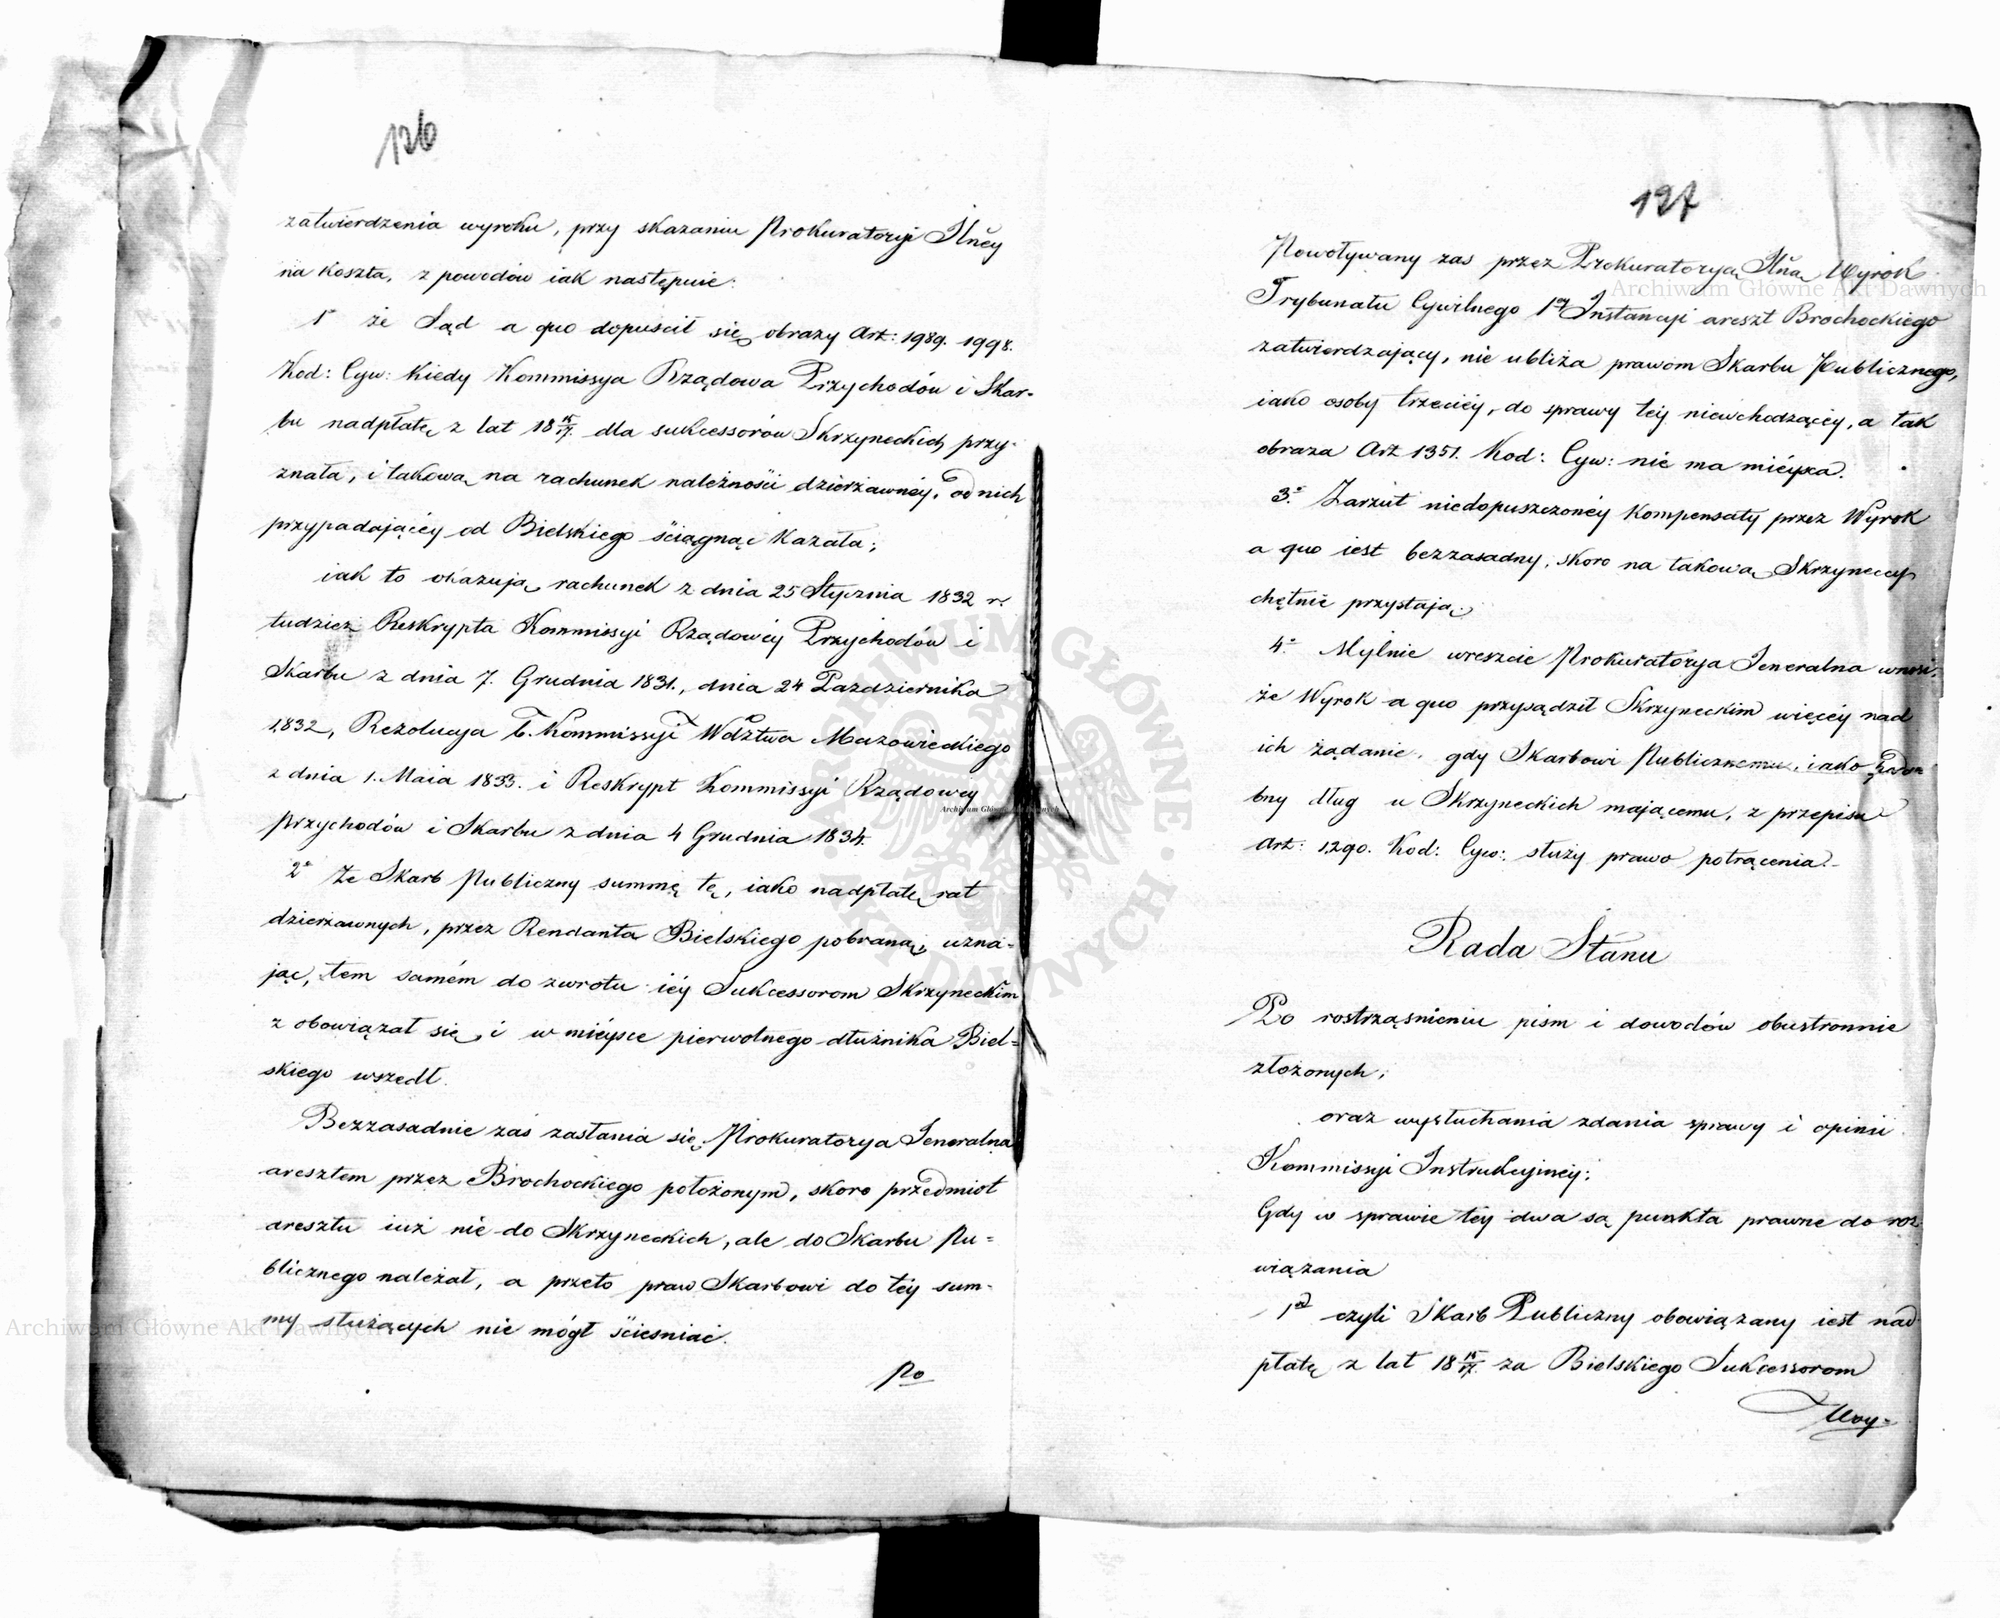 126
zatwierdzenia wyroku, przy skazaniu Prokuratoryi Jlnéy
na koszta, z powodów iak następuie:
1° że Sąd a quo dopuścił się obrazy Art: 1989. 1998.
Kod: Cyw: kiedy Kommissya Rządowa Przychodów i Skar-
bu nadpłatę z lat 18 15/17. dla sukcessorów Skrzyneckich przy-
znała, i takową na rachunek należności dzierżawnéy, od nich
przypadaiącéy od Bielskiego ściągnąć kazała;
iak to okazują rachunek z dnia 25 Stycznia 1832 r.
tudzież Reskrypta Kommissyi Rządowéy Przychodów i
Skarbu z dnia 7. Grudnia 1831., dnia 24 Października
1832, Rezolucya b. Kommissyi Wdztwa Mazowieckiego
z dnia 1. Maia 1833. i Reskrypt Kommissyi Rządowéy
Przychodów i Skarbu z dnia 4 Grudnia 1834.
2° Że Skarb Publiczny summę tę, iako nadpłatę rat
dzierżawnych, przez Rendanta Bielskiego pobraną, uzna-
jąc, tem samém do zwrotu iéy Sukcessorom Skrzyneckim
zobowiązał się, i w miéysce pierwotnego dłużnika Biel-
skiego wszedł.
Bezzasadnie zaś zasłania się Prokuratorya Jeneralna
aresztem przez Brochockiego położonym, skoro przedmiot
aresztu iuż nie do Skrzyneckich, ale do Skarbu Pu-
blicznego należał, a przeto praw Skarbowi do téy sum-
my służących nie mógł ścieśniać.
Po
127
Powoływany zaś przez Prokuratoryą Jlną Wyrok
Trybunału Cywilnego 1éy Instancyi areszt Brochockiego
zatwierdzaiący, nie ubliża prawom Skarbu Publicznego,
iako osoby trzeciéy, do sprawy téy niewchodzącéy, a tak
obraza Art 1351. Kod: Cyw: nie ma miéysca.
3° Zarzut niedopuszczonéy kompensaty przez Wyrok
a quo iest bezzasadny, skoro na takową Skrzyneccy
chętnie przystają.
4° Mylnie wreszcie Prokuratorya Jeneralna wnosi,
że Wyrok a quo przysądził Skrzyneckim więcéy nad
ich żądanie, gdy Skarbowi Publicznemu, iako
bny dług u Skrzyneckich mającemu, z przepisu
Art: 1290. Kod: Cyw:, służy prawo potrącenia.
Rada Stanu
Po rostrząśnieniu pism i dowodów obustronnie
złożonych,
oraz wysłuchania zdania sprawy i opinii
Kommissyi Instrukcyinéy;
Gdy w sprawie téy dwa są punkta prawne do roz-
wiązania
1od czyli Skarb Publiczny obowiązany iest nad-
płatę z lat 18 15/17. za Bielskiego Sukcessorom
Archiwum Główne Akt Dawnych
Archiwum Główne Akt Dawnych
Archiwum Główne Akt Dawnych
ARCHIWUM GŁÓWNE · AKT DAWNYCH ·